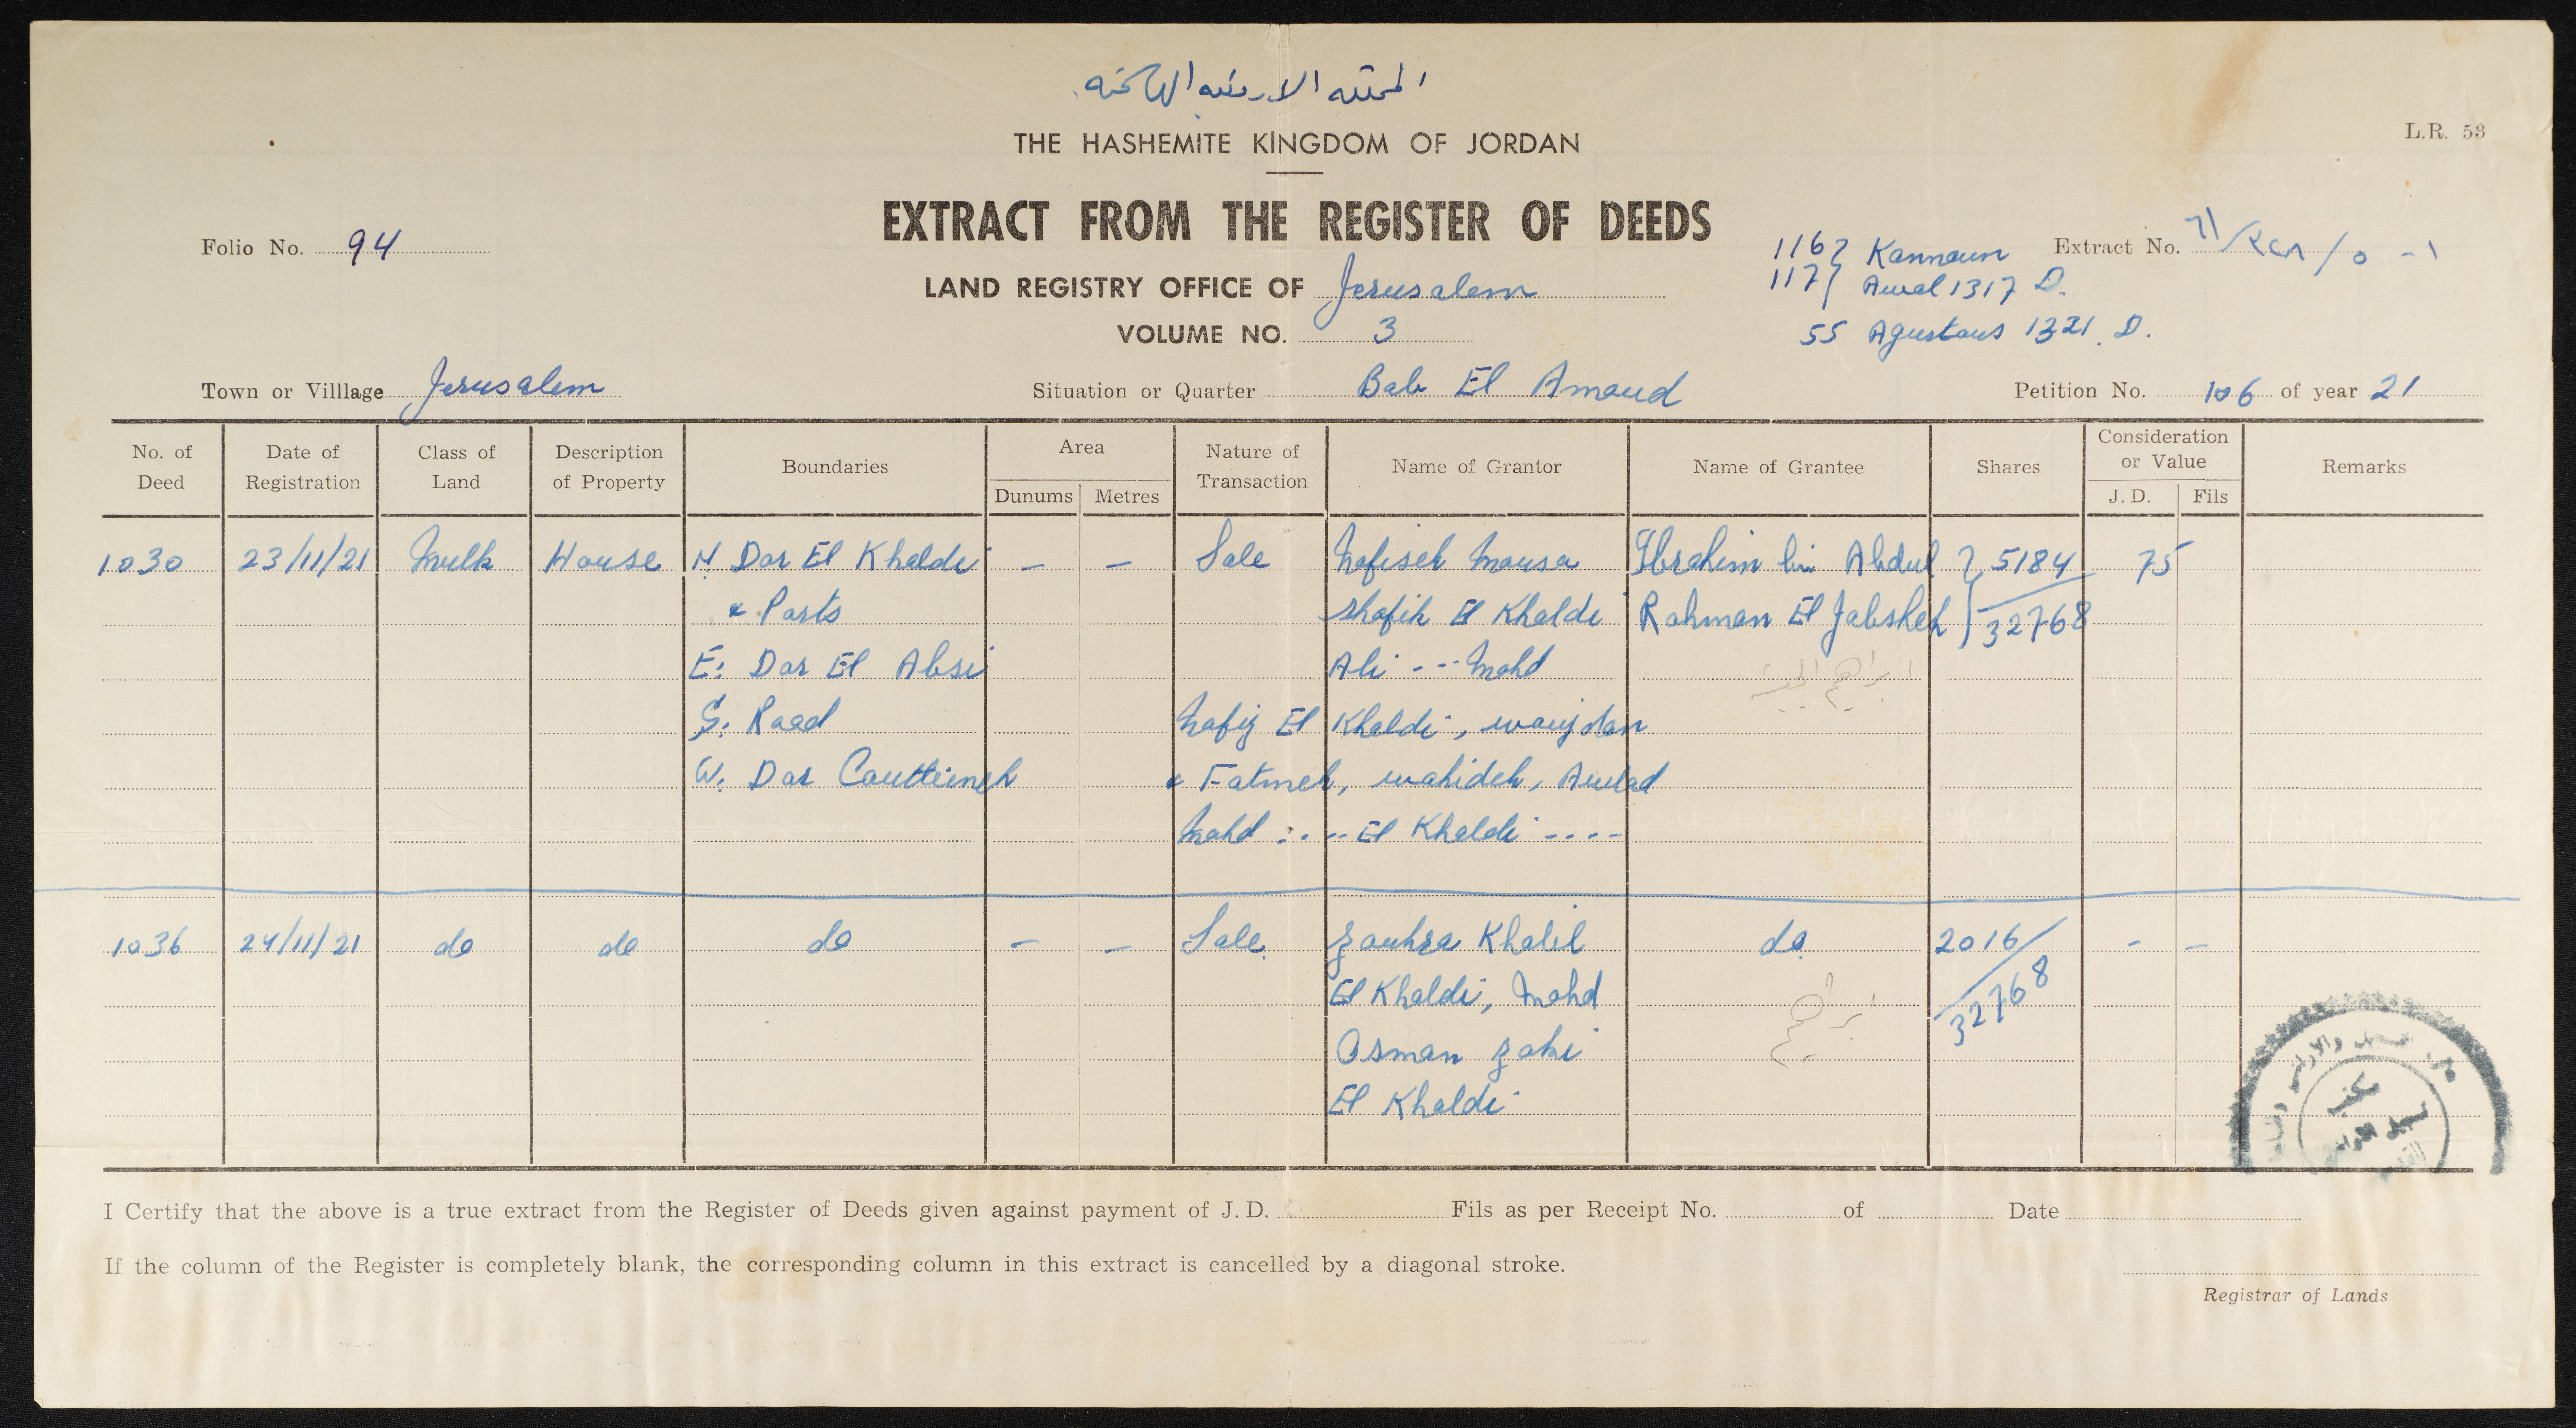 المملكة الاردنية الهاشمية
THE HASHEMITE KINGDOM OF JORDAN
L.R. 53
EXTRACT FROM THE REGISTER OF DEEDS
Folio No. 94
116 } Kannoun
117 } Awal 1317 D.
Extract No.
LAND REGISTRY OFFICE OF Jerusalem
VOLUME NO. 3
55 Agustous 1321. D.
Town or Villlage Jerusalem
Situation or Quarter Bab El Amoud
Petition No. 106 of year 21
No. of Deed
Date of Registration
Class of Land
Description of Property
Boundaries
Area
Dunums
Metres
Nature of Transaction
Name of Grantor
Name of Grantee
Shares
Consideration or Value
J. D.
Fils
Remarks
1030 23/11/21 Mulk House N. Dar El Khaldi - - Sale Nafiseh Mousa Ibrahim bin Abdul } 5184/ 75
& Parts Shafik El Khaldi Rahman El Jabsheh } 32768
E: Dar El Absi Ali --- Mohd
ابراهيم
S: Road Nafiz El Khaldi, woujdan
W. Dar Coutteineh & Fatmeh, wahideh, Awlad
Mohd .. -- El Khaldi ----
1036 24/11/21 do do do - - Sale. Zouhra Khalil do. 2016/ - -
El Khaldi, Mohd 32768
Osman Zaki
El Khaldi
I Certify that the above is a true extract from the Register of Deeds given against payment of J. D. Fils as per Receipt No. of Date
If the column of the Register is completely blank, the corresponding column in this extract is cancelled by a diagonal stroke.
Registrar of Lands